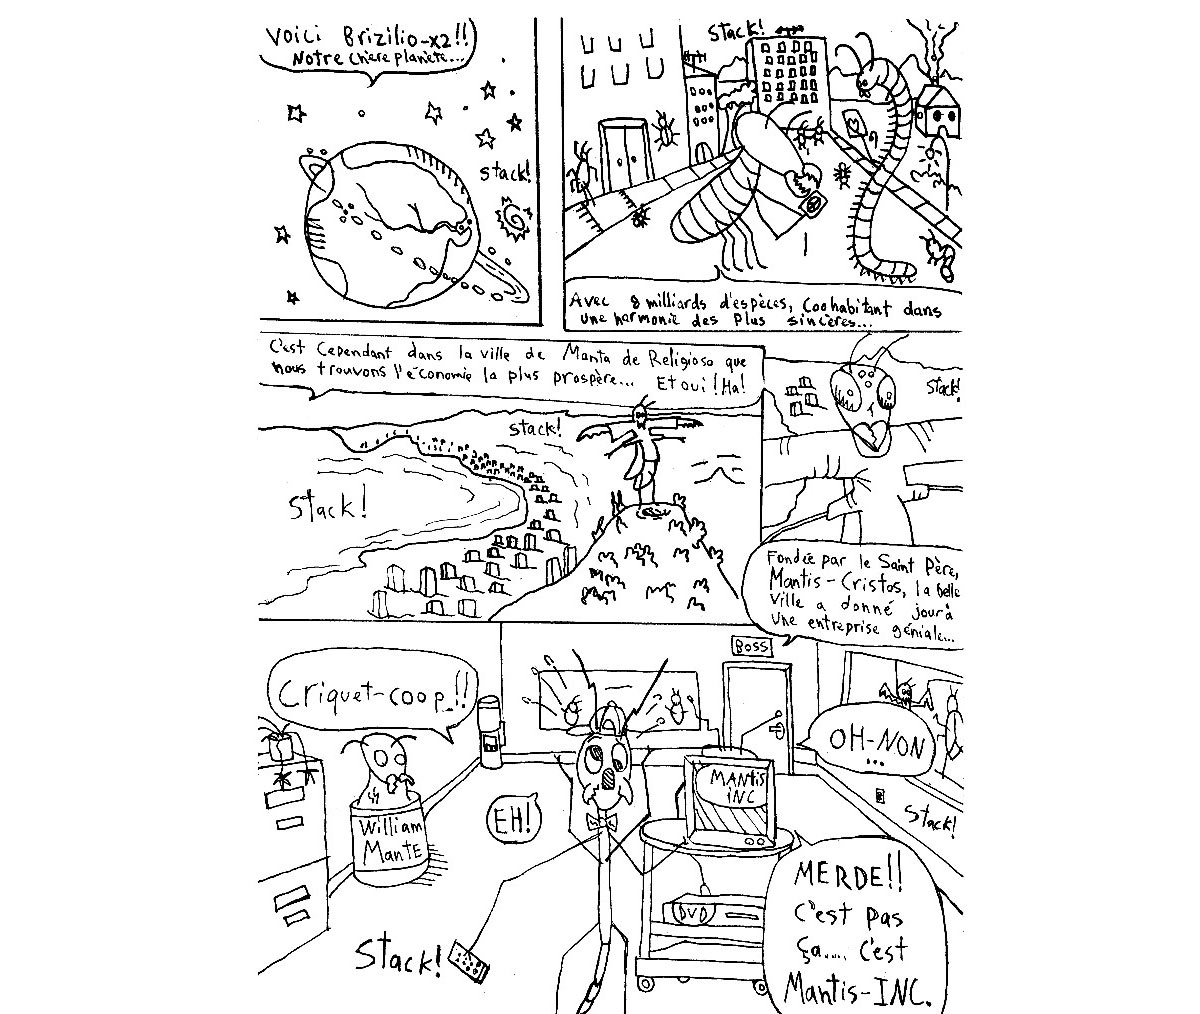 Voici Brizilio-X2!!
Notre chère planète...
Stack!
Stack!
Avec 8 milliards d'espèces, Coohabitant dans
une harmonie des plus sincères...
C'est cependant dans la ville de Manta de Religioso que
nous trouvons l'économie la plus prospère... Et oui! Ha!
Stack!
Stack!
Stack!
Fondée par le Saint Père,
Mantis-Cristos, la belle
ville a donné jour à
une entreprise géniale...
Criquet-coop..!!
BOSS
OH-NON
...
MANTIS
INC
EH!
William
Mante
Stack!
DVD
Stack!
MERDE!!
C'est pas
ça.... C'est
Mantis-INC.